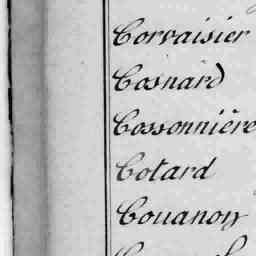 Corvaisier
Cosnard
Cossonnière
Cotard
Couanon